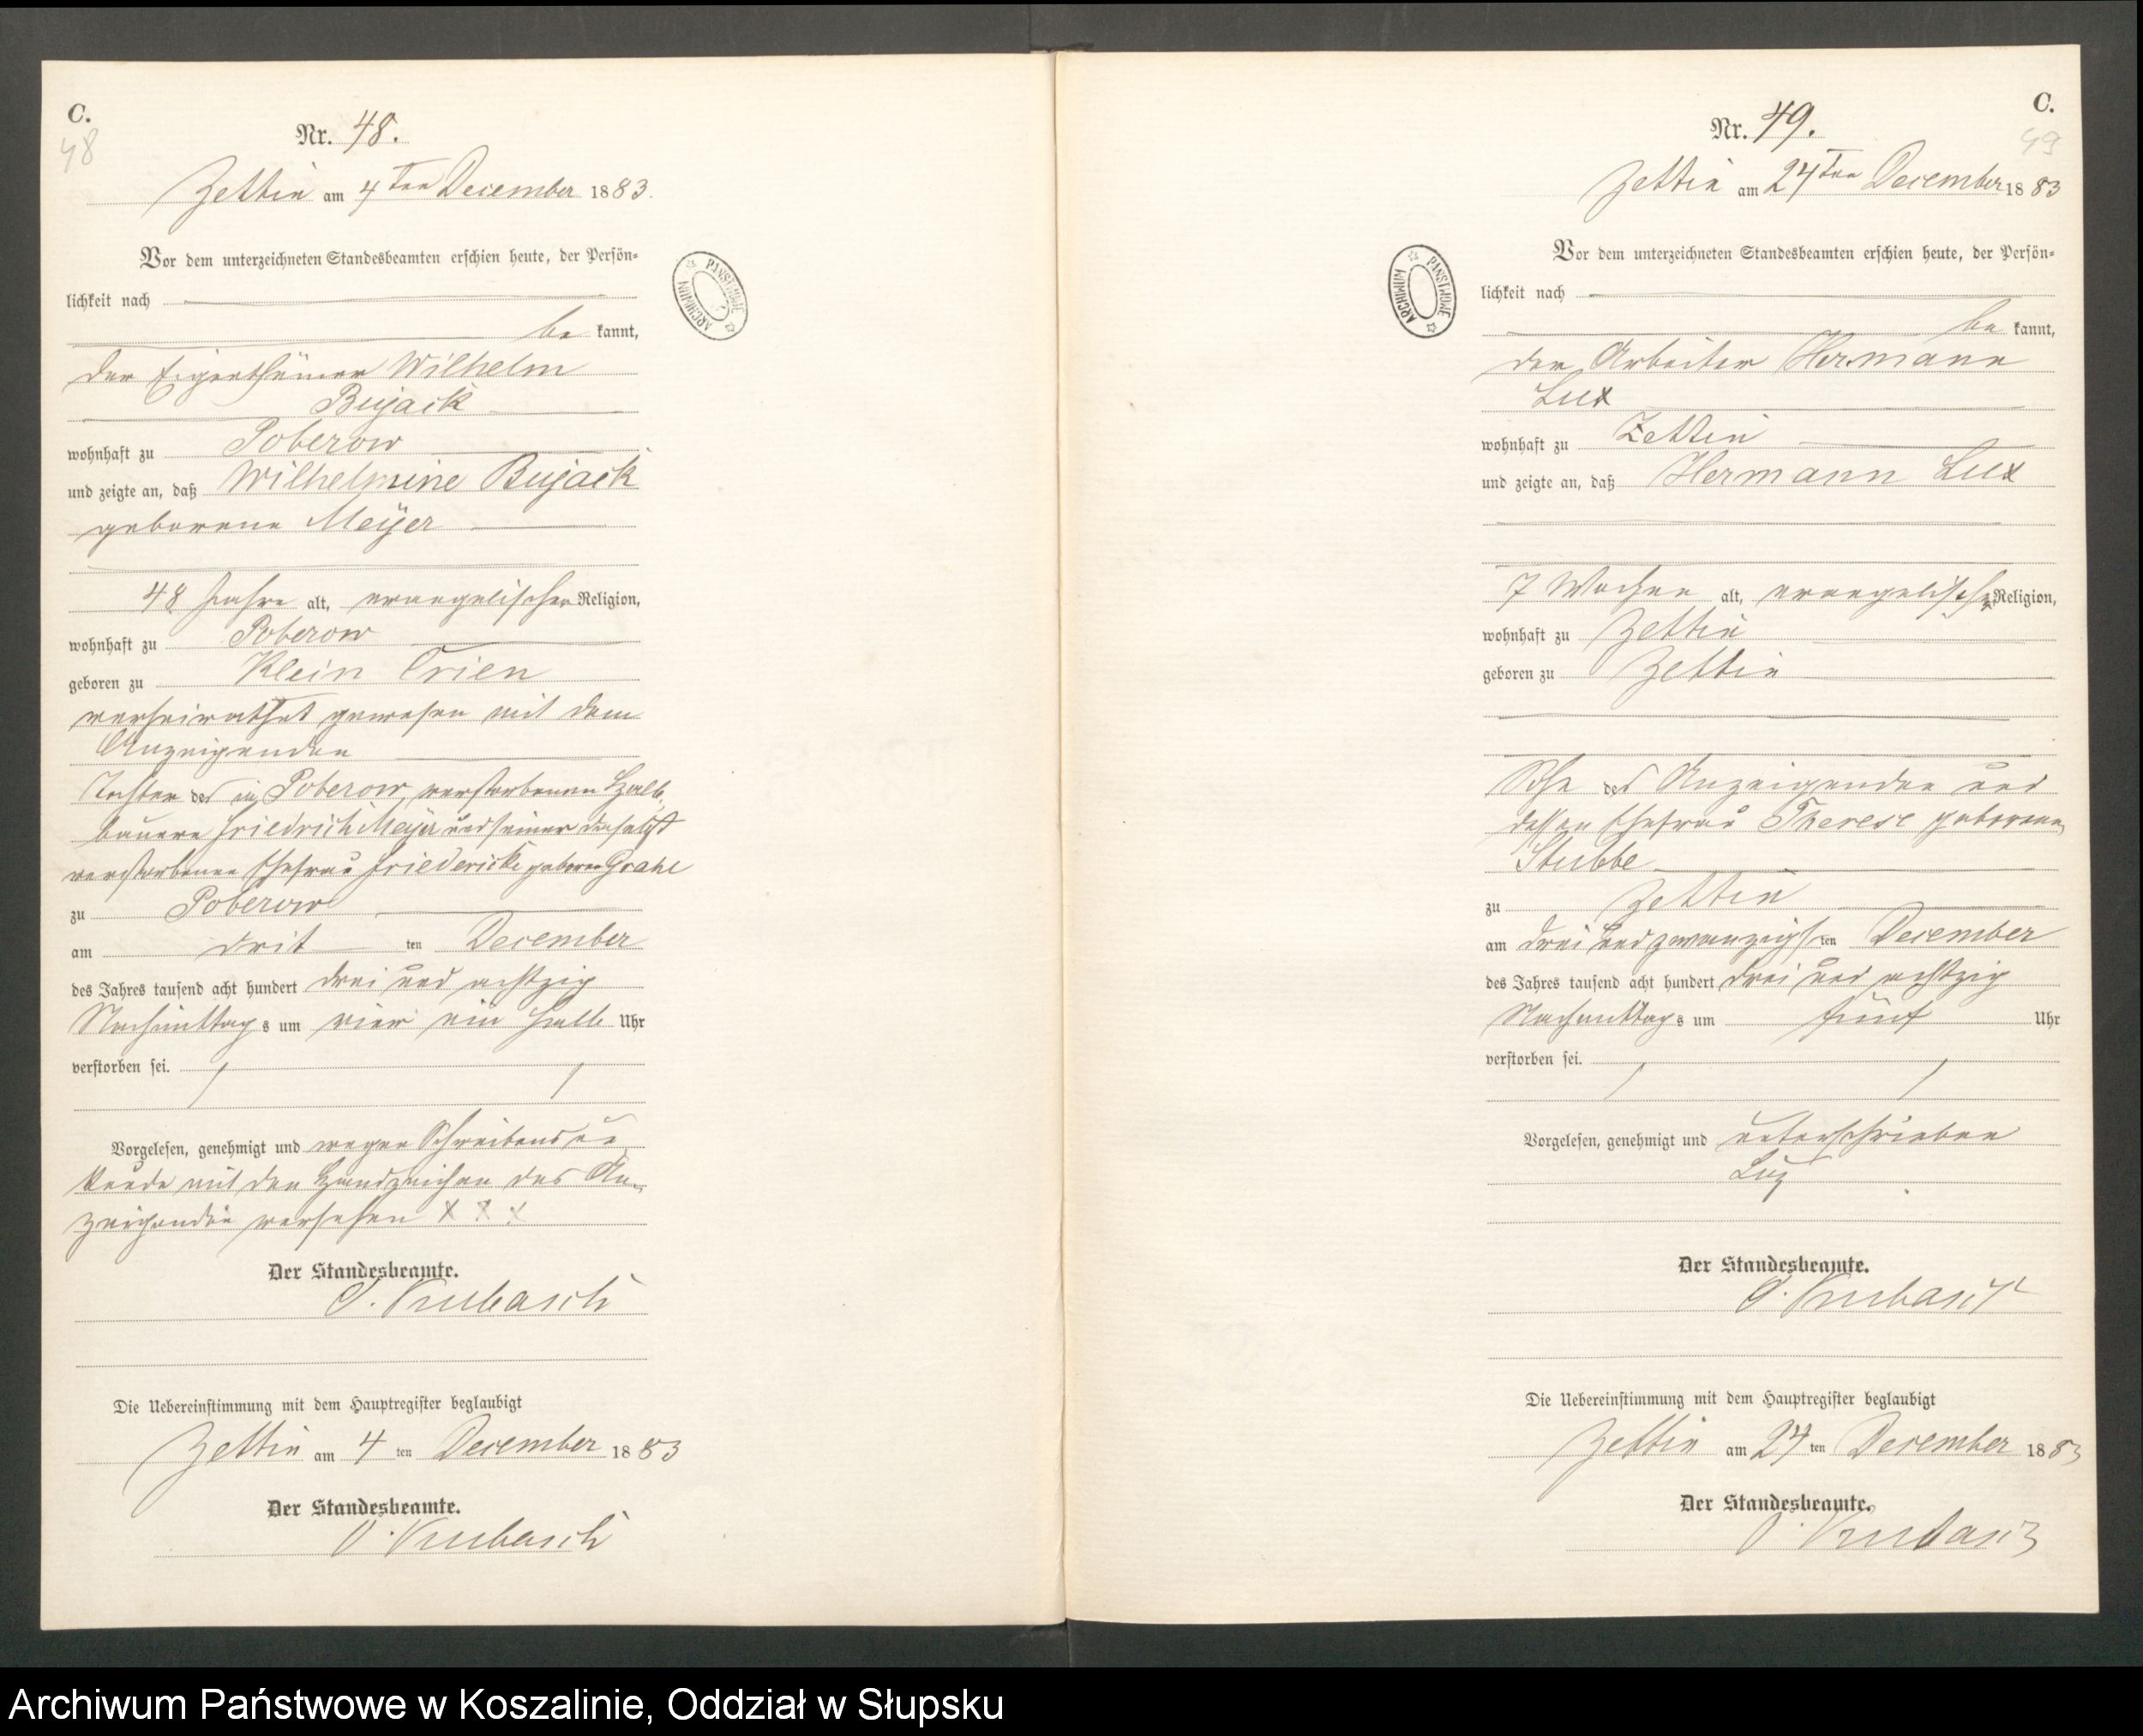 C.
48
Nr. 48.
Zettin am 4 ten December 1883.
Vor dem unterzeichneten Standesbeamten erschien heute, der Persön-
lichkeit nach
be kannt,
der Eigenthümer Wilhelm
Bujack
wohnhaft zu Poberow
und zeigte an, daß Wilhelmine Bujack
geborene Meÿer
48 Jahre alt, evangelischer Religion,
wohnhaft zu Poberow
geboren zu Klein Crien
verheirathet gewesen mit dem
Anzeigenden
Tochter des in Poberow verstorbenen Halb-
bauern Friedrich Meÿer und seiner daselbst
verstorbenen Ehefrau Friedericke geborene
zu Poberow
am drit ten December
des Jahres tausend acht hundert drei und achtzig
Nachmittag s um vier ein halb Uhr
verstorben sei.
Vorgelesen, genehmigt und wegen Schreibensun
kunde mit den Handzeichen des An-
zeigenden versehen X X X
Der Standesbeamte.
Die Uebereinstimmung mit dem Hauptregister beglaubigt
Zettin am 4 ten December 1883
Der Standesbeamte.
C.
49
Nr. 49.
Zettin am 24 ten December 1883
Vor dem unterzeichneten Standesbeamten erschien heute, der Persön-
lichkeit nach
be kannt,
der Arbeiter Hermann
Lux
wohnhaft zu Zettin
und zeigte an, daß Hermann Lux
7 Wochen alt, evangelischer Religion,
wohnhaft zu Zettin
geboren zu Zettin
Sohn des Anzeigenden und
dessen Ehefrau Therese geborene
Stubbe
zu Zettin
am drei und zwanzigs ten December
des Jahres tausend acht hundert drei und achtzig
Nachmittag s um fünf Uhr
verstorben sei.
Vorgelesen, genehmigt und unterschrieben
Lux
Der Standesbeamte.
Die Uebereinstimmung mit dem Hauptregister beglaubigt
Zettin am 24 ten December 1883
Der Standesbeamte.
ARCHIWUM PAŃSTWOWE
ARCHIWUM PAŃSTWOWE
Archiwum Państwowe w Koszalinie, Oddział w Słupsku